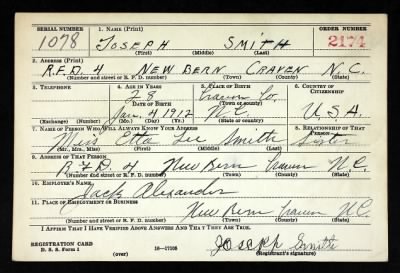 SERIAL NUMBER 1. NAME (Print) ORDER NUMBER
1078 JOSEPH SMITH 2174
(First) (Middle) (Last)
2. ADDRESS (Print)
R.F.D. 4 NEW BERN CRAVEN N.C.
(Number and street or R. F. D. number) (Town) (County) (State)
3. TELEPHONE 4. AGE IN YEARS 5. PLACE OF BIRTH 6. COUNTRY OF CITIZENSHIP
28 Craven Co.
DATE OF BIRTH (Town or county)
Jan. 4 1912 N.C. U.S.A.
(Exchange) (No.) (Mo.) (Day) (Yr.) (State or country)
7. NAME OF PERSON WHO WILL ALWAYS KNOW YOUR ADDRESS 8. RELATIONSHIP OF THAT PERSON
Miss Etta Lee Smith Sister
(Mr., Mrs., Miss) (First) (Middle) (Last)
9. ADDRESS OF THAT PERSON
R.F.D. 4 New Bern Craven N.C.
(Number and street or R. F. D. number) (Town) (County) (State)
10. EMPLOYER'S NAME
Jack Alexander
11. PLACE OF EMPLOYMENT OR BUSINESS
New Bern Craven N.C.
(Number and street or R. F. D. number) (Town) (County) (State)
I AFFIRM THAT I HAVE VERIFIED ABOVE ANSWERS AND THAT THEY ARE TRUE.
REGISTRATION CARD Joseph Smith
D. S. S. Form 1 (over) 16—17105 (Registrant's signature)